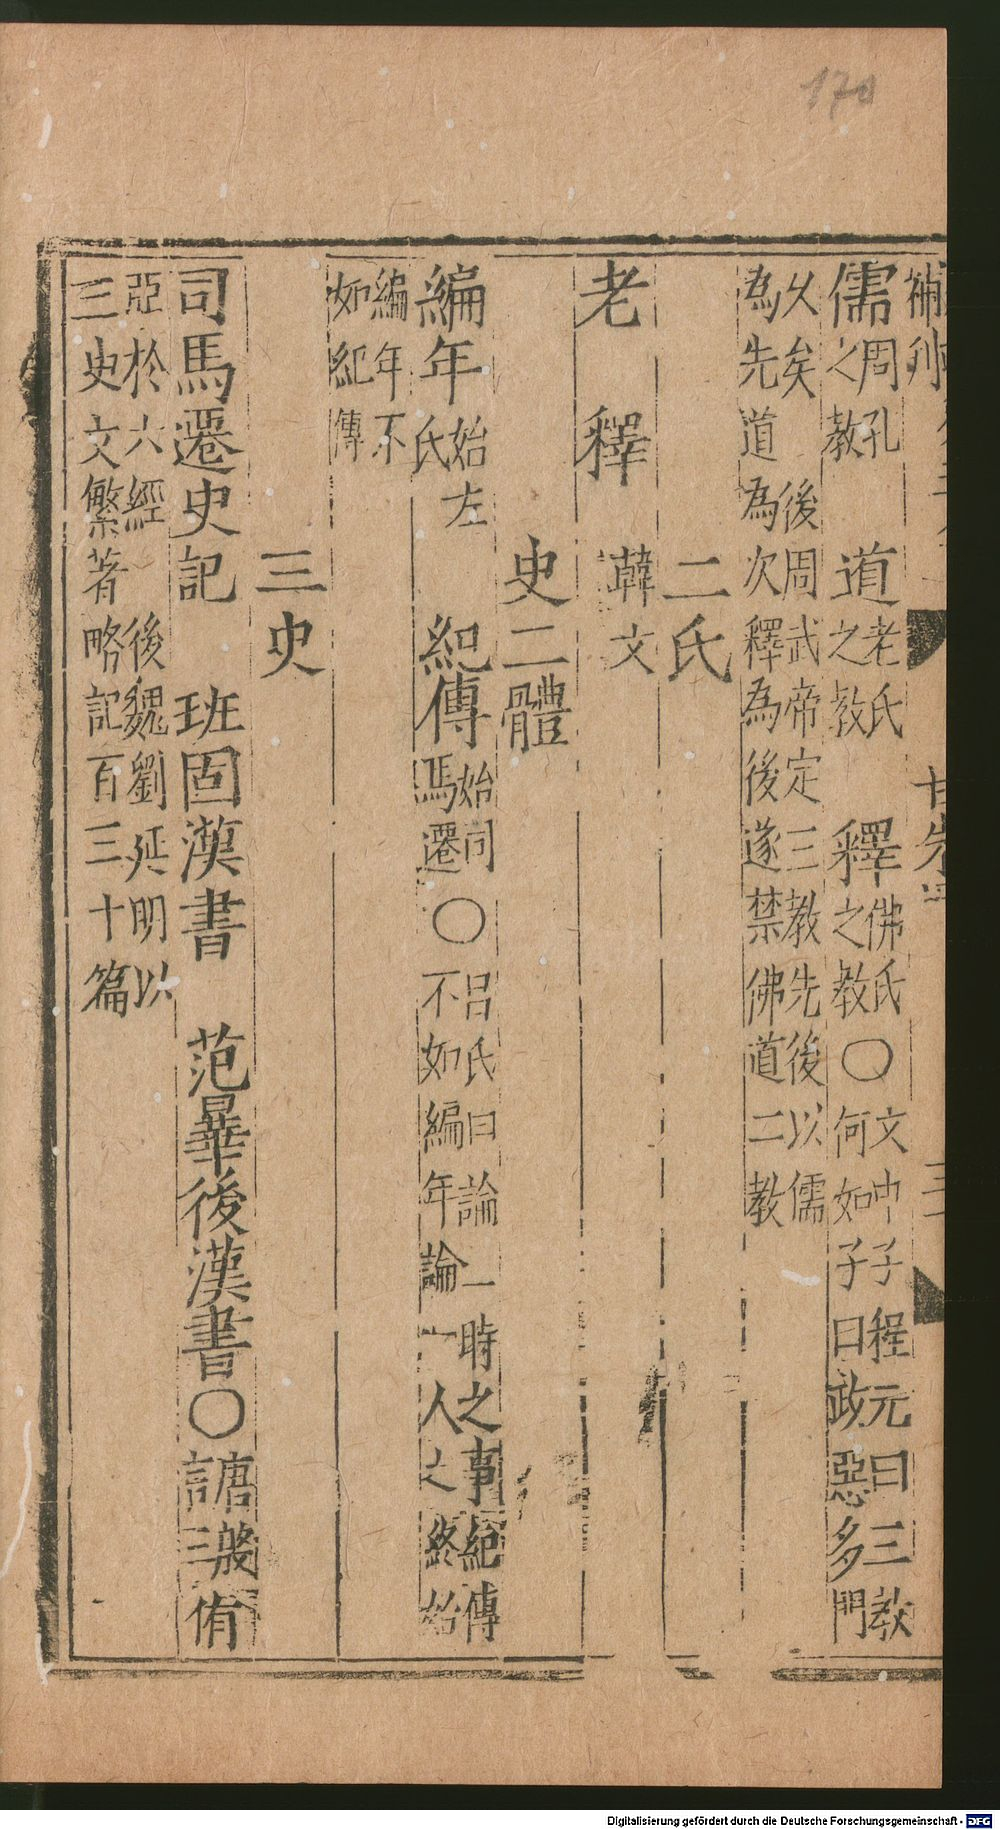 170
補刋
儒周孔之教 道老氏之教 釋佛氏之教〇文中子程元曰三教何如子曰政惡多門
乆矣 後周武帝定三教先後以儒為先道為次釋為後遂禁佛道二教
二氏
老 釋 韓文
史二體
編年始左氏 紀傳始司馬遷〇呂氏曰論一時之事紀傳不如編年論一人之終始
編年不如紀傳
三史
司馬遷史記 班固漢書 范曅後漢書〇唐殷侑言三
亞於六經 後魏劉延明以三史文繁著略記百三十篇
Digitalisierung gefördert durch die Deutsche Forschungsgemeinschaft - DFG